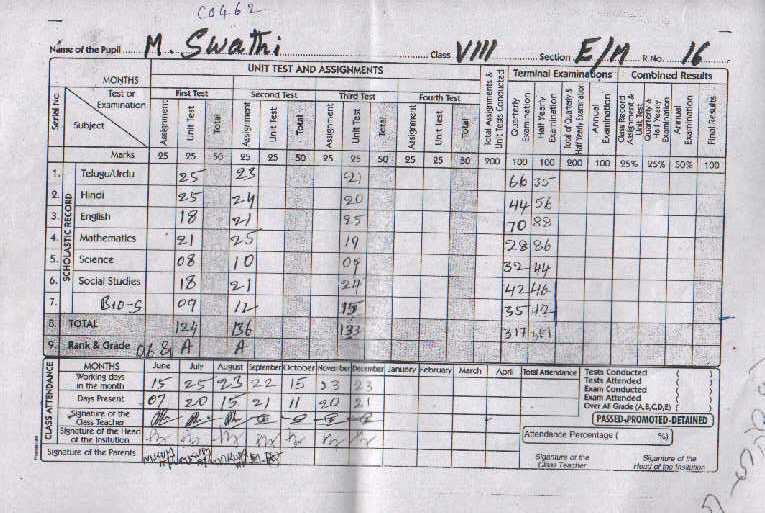 C0462
Name of the Pupil M. Swathi Class VIII Section E/M R.No. 16
UNIT TEST AND ASSIGNMENTS Terminal Examinations Combined Results
MONTHS
Serial No. Test or Examination Subject First Test Second Test Third Test Fourth Test
Assignment Unit Test Total Assignment Unit Test Total Assignment Unit Test Total Assignment Unit Test Total Total Assignments & Unit Tests Conducted Quarterly Examination Half Yearly Examination Total of Quarterly & Half Yearly Examination Annual Examination Class Record Assignment & Unit Test Quarterly & Half Yearly Examination Annual Examination Final Results
Marks 25 25 50 25 25 50 25 25 50 25 25 50 200 100 100 200 100 25% 25% 50% 100
SCHOLASTIC RECORD
1. Telugu/Urdu 25 23 21 66 35
2. Hindi 25 24 20 44 56
3. English 18 21 25 70 88
4. Mathematics 21 25 19 28 86
5. Science 08 10 09 32 44
6. Social Studies 18 21 24 42 46
7. Bio-S 09 12 15 35
8. TOTAL 124 136 133 317
9. Rank & Grade A A
CLASS ATTENDANCE
MONTHS June July August September October November December January February March April Total Attendance
Working days in the month 15 25 23 22 15 23 23
Days Present 07 20 15 21 11 20 21
Signature of the Class Teacher
Signature of the Head of the Institution
Signature of the Parents
Tests Conducted ( )
Tests Attended ( )
Exam Conducted ( )
Exam Attended ( )
Over All Grade (A,B,C,D,E) ( )
PASSED-PROMOTED-DETAINED
Attendance Percentage ( %)
Signature of the Class Teacher Signature of the Head of the Institution